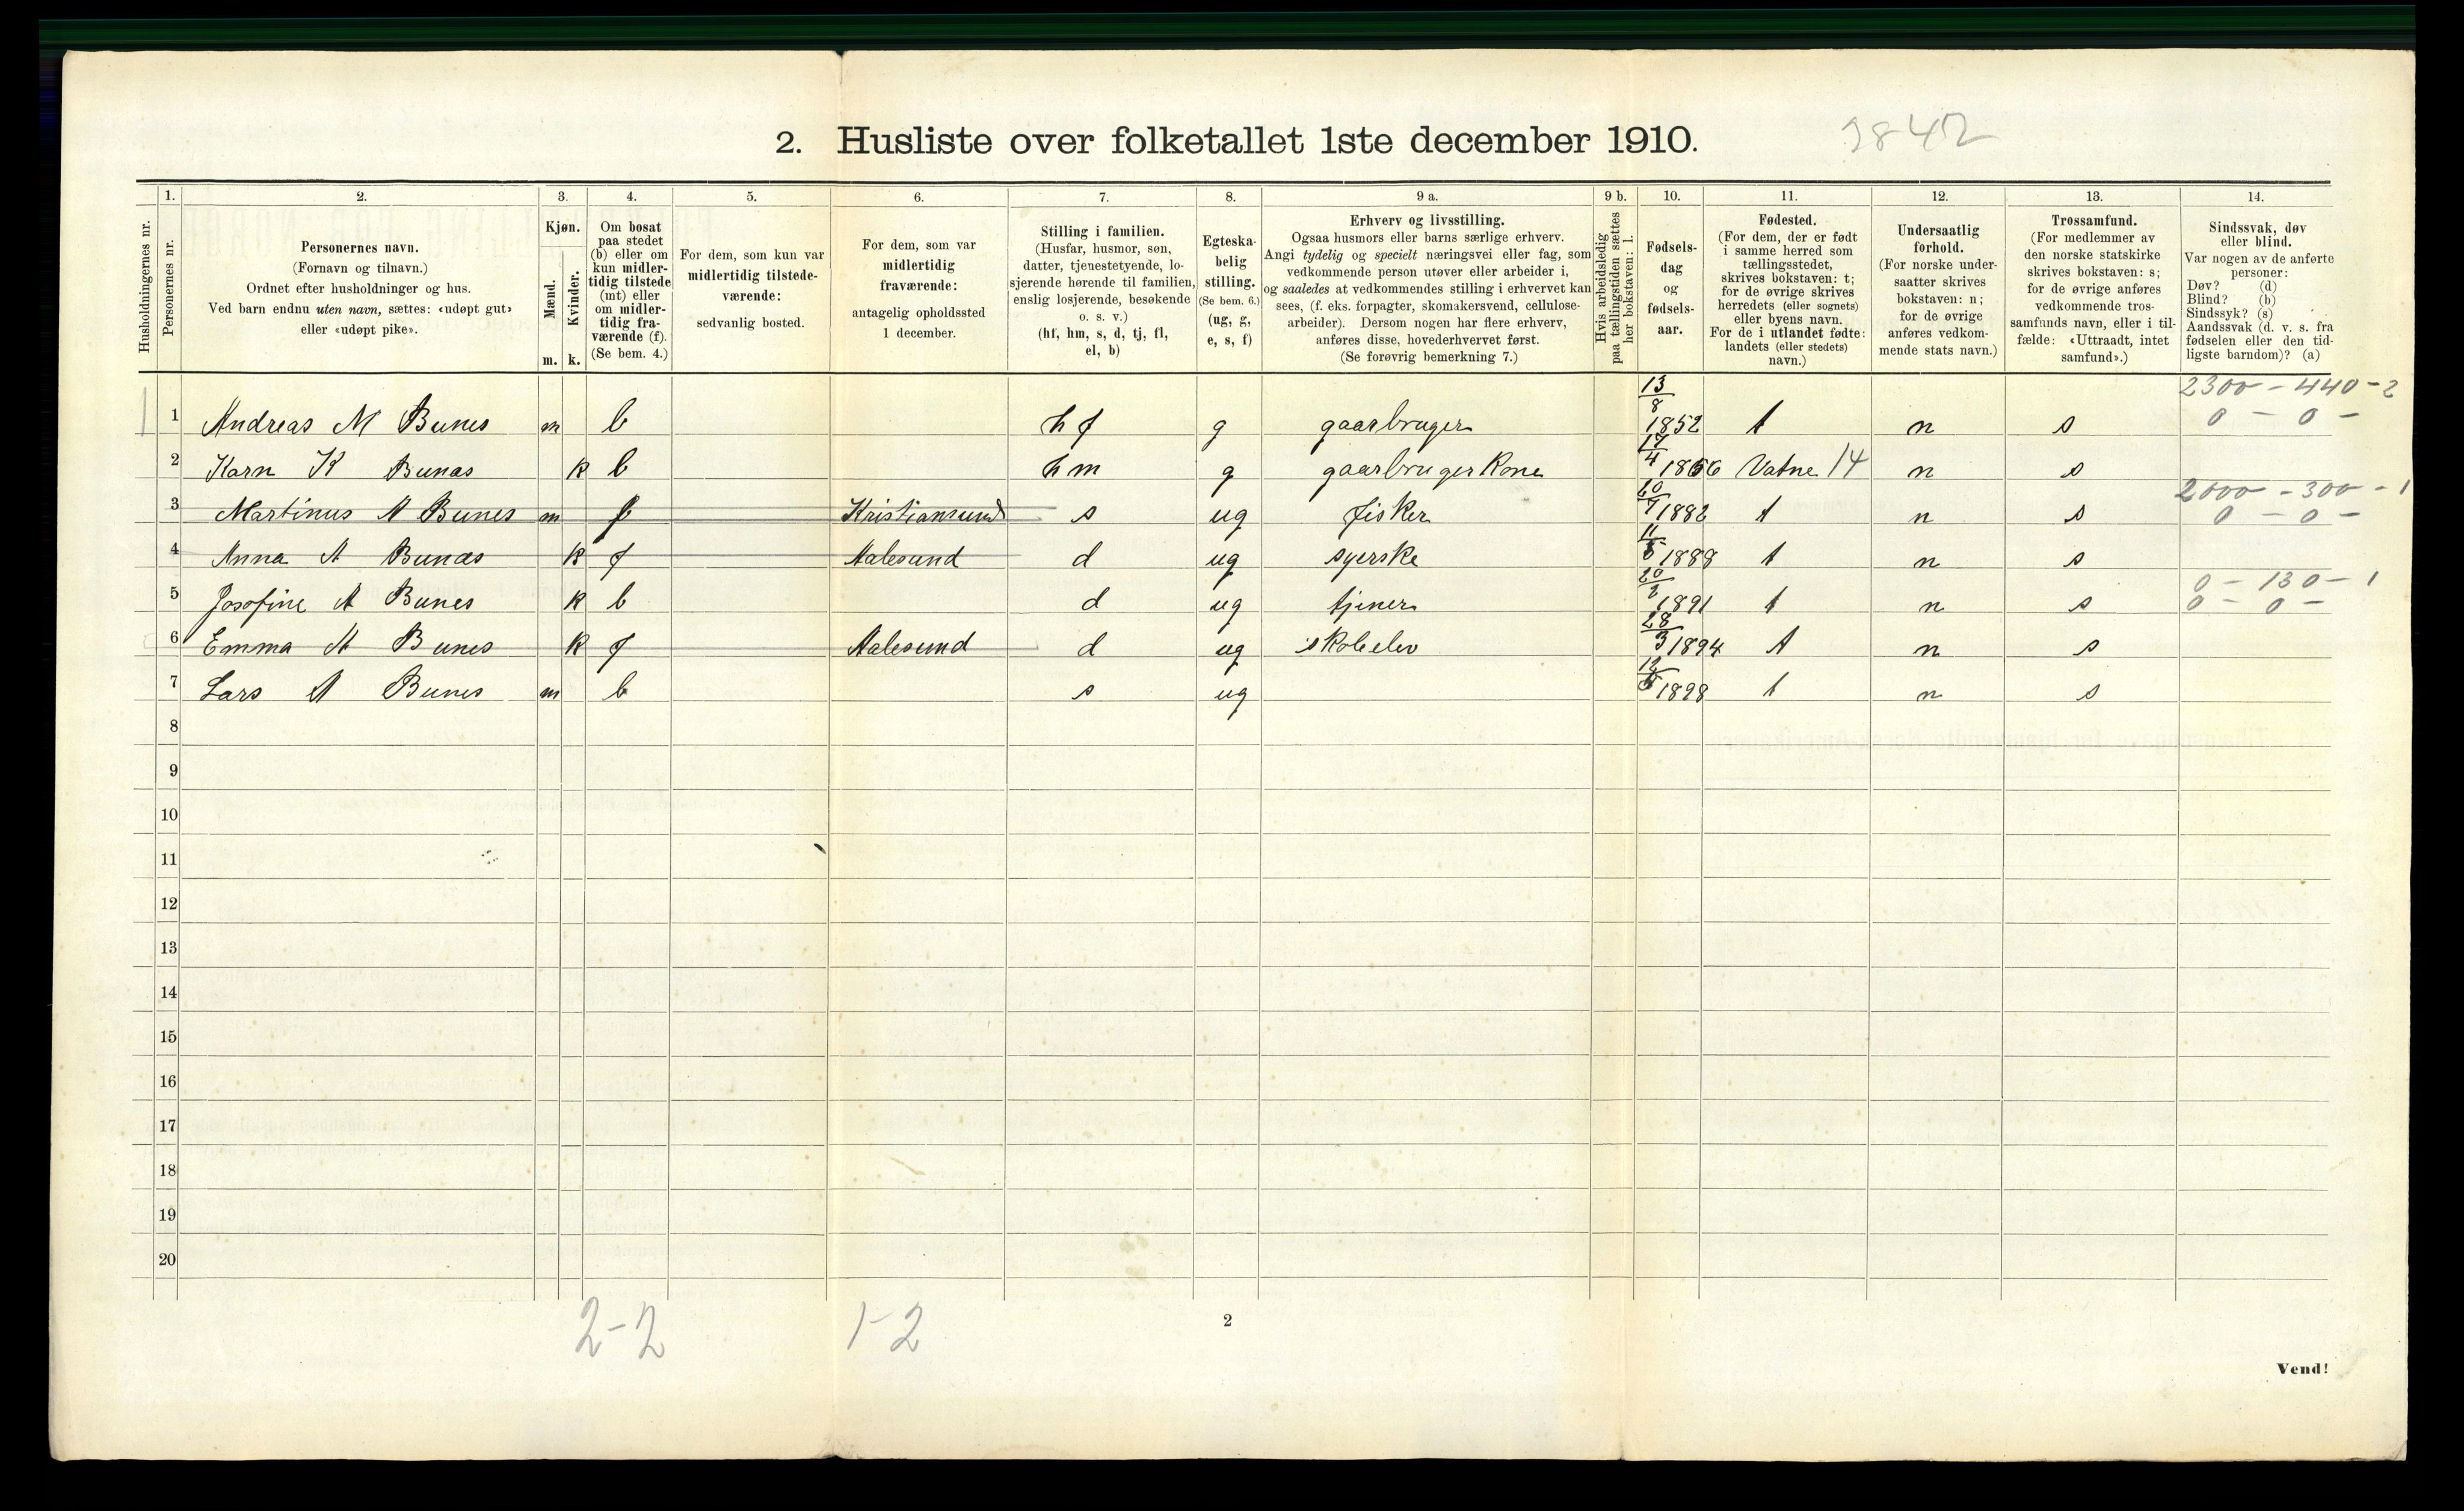 2. Husliste over folketallet 1ste december 1910. 2842
Husholdningernes nr.
1. Personernes nr.
2. Personernes navn.
(Fornavn og tilnavn.)
Ordnet efter husholdninger og hus.
Ved barn endnu uten navn, sættes: «udøpt gut»
eller «udøpt pike».
3. Kjøn.
Mænd. m.
Kvinder. k.
4. Om bosat
paa stedet
(b) eller om
kun midler-
tidig tilstede
(mt) eller
om midler-
tidig fra-
værende (f).
(Se bem. 4.)
5. For dem, som kun var
midlertidig tilstede-
værende:
sedvanlig bosted.
6. For dem, som var
midlertidig
fraværende:
antagelig opholdssted
1 december.
7. Stilling i familien.
(Husfar, husmor, søn,
datter, tjenestetyende, lo-
sjerende hørende til familien,
enslig losjerende, besøkende
o. s. v.)
(hf, hm, s, d, tj, fl,
el, b)
8. Egteska-
belig
stilling.
(Se bem. 6.)
(ug, g,
e, s, f)
9 a. Erhverv og livsstilling.
Ogsaa husmors eller barns særlige erhverv.
Angi tydelig og specielt næringsvei eller fag, som
vedkommende person utøver eller arbeider i,
og saaledes at vedkommendes stilling i erhvervet kan
sees, (f. eks. forpagter, skomakersvend, cellulose-
arbeider). Dersom nogen har flere erhverv,
anføres disse, hovederhvervet først.
(Se forøvrig bemerkning 7.)
9 b. Hvis arbeidsledig
paa tællingstiden sættes
her bokstaven: l.
10. Fødsels-
dag
og
fødsels-
aar.
11. Fødested.
(For dem, der er født
i samme herred som
tællingsstedet,
skrives bokstaven: t;
for de øvrige skrives
herredets (eller sognets)
eller byens navn.
For de i utlandet fødte:
landets (eller stedets)
navn.)
12. Undersaatlig
forhold.
(For norske under-
saatter skrives
bokstaven: n;
for de øvrige
anføres vedkom-
mende stats navn.)
13. Trossamfund.
(For medlemmer av
den norske statskirke
skrives bokstaven: s;
for de øvrige anføres
vedkommende tros-
samfunds navn, eller i til-
fælde: «Uttraadt, intet
samfund».)
14. Sindssvak, døv
eller blind.
Var nogen av de anførte
personer:
Døv? (d)
Blind? (b)
Sindssyk? (s)
Aandssvak (d. v. s. fra
fødselen eller den tid-
ligste barndom)? (a)
2300 - 440 - 2
1 1 Andreas M Bunes m b h f g gaarbruger 13/8 1852 t n s 0 - 0 -
2 Karn K Bunæs k b h m g gaarbruger kone 17/4 1856 Vatne 14 n s
2000 - 300 - 1
3 Martinus A Bunes m f Kristiansund s ug fisker 20/7 1882 t n s 0 - 0 -
4 Anna A Bunæs k f Aalesund d ug syerske 11/5 1889 t n s
0 - 130 - 1
5 Josefine A Bunes k b d ug tjener 20/2 1891 t n s 0 - 0 -
6 Emma A Bunes k f Aalesund d ug skoleelev 28/3 1894 t n s
7 Lars A Bunes m b s ug 12/5 1898 t n s
8
9
10
11
12
13
14
15
16
17
18
19
20
2-2 1-2 2
Vend!